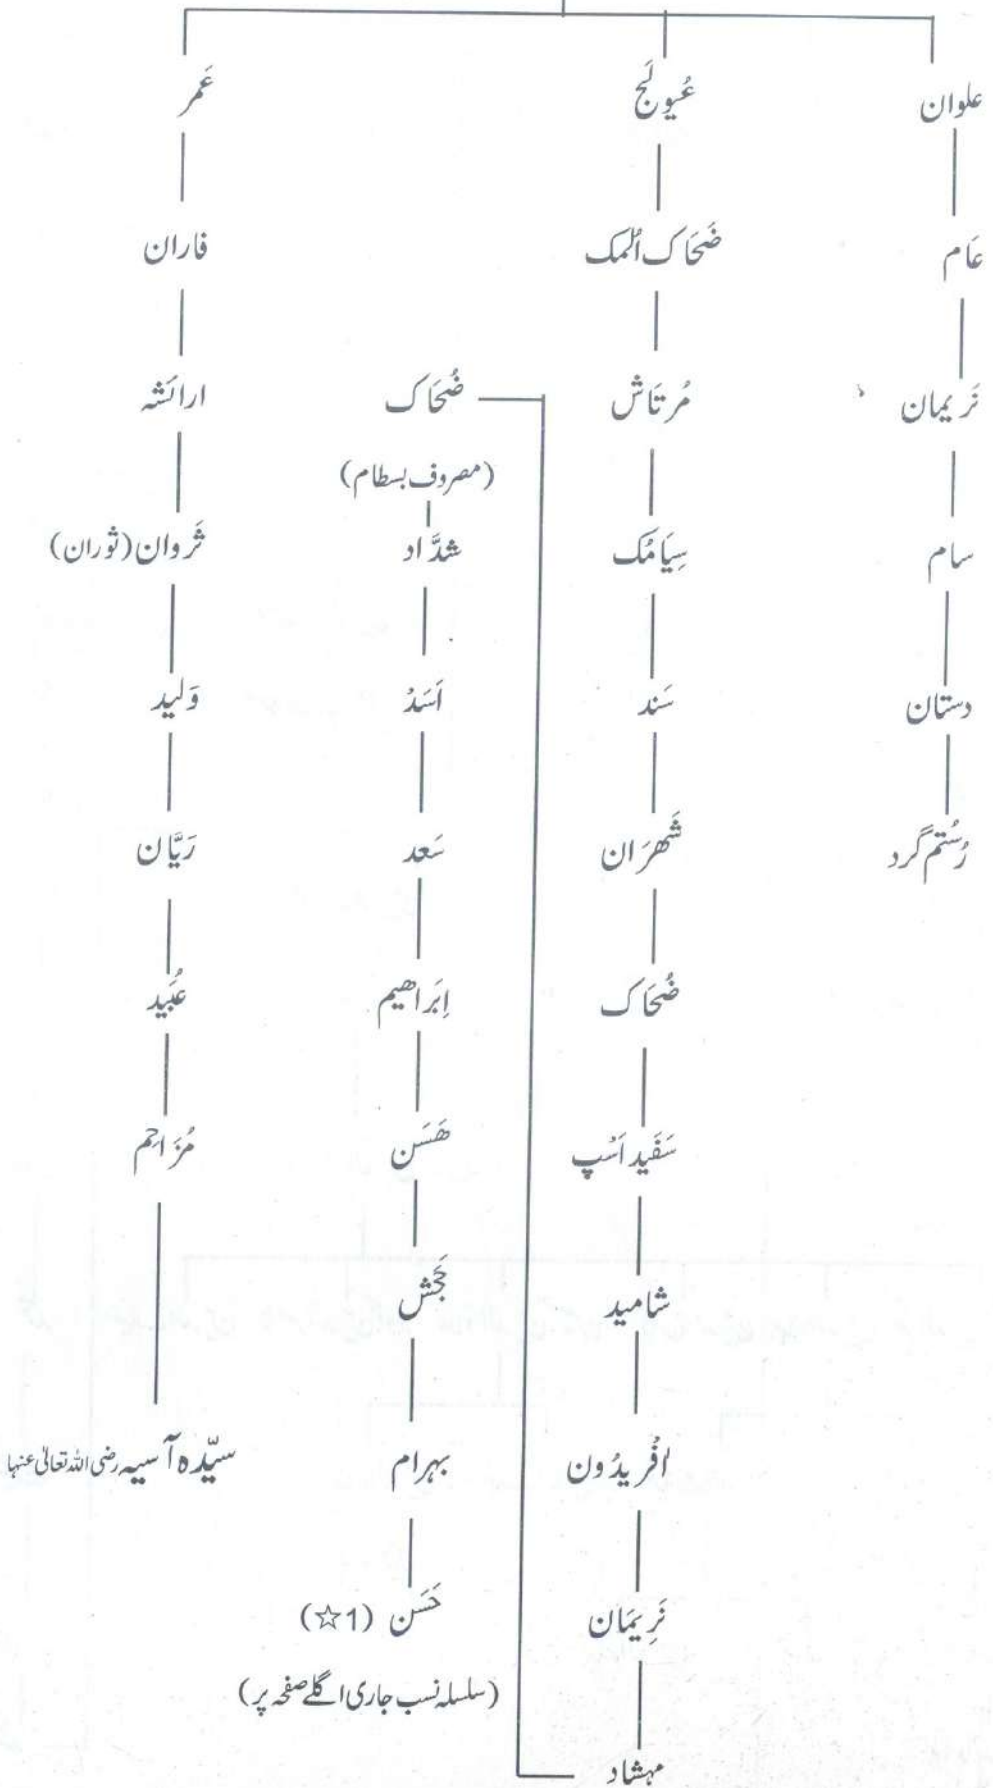 علوان
عَام
نَریمان
سام
دستان
رُستم گرد
عُیولَج
ضَحَاک اُلمک
مُرتَاش
سِیَامُک
سَند
شَھرَان
ضُحَاک
سَفَید اَسْپ
شامید
افْریدُون
نَرِیمَان
مہشاد
ضُحَاک
(مصروف بسطام)
شدَّاد
اَسَدْ
سَعد
اِبَراھیم
ھَسَن
بہرام
حَسَن (1☆)
(سلسلہ نسب جاری اگلے صفحہ پر)
عَمر
فاران
ارائشہ
ثَروان (ثوران)
وَلید
رَیَّان
عُبَید
مُزَاحم
سیّدہ آسیہ رضی اللہ تعالیٰ عنہا